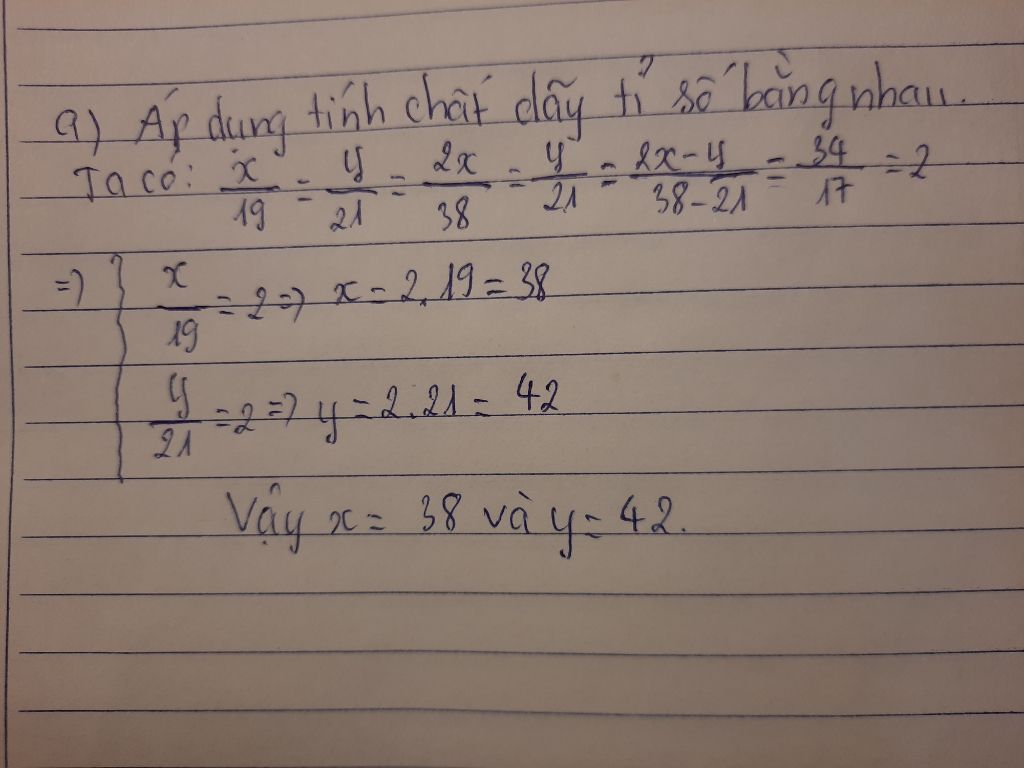 a) Áp dụng tính chất dãy tỉ số bằng nhau.
Ta có: x/19 = y/21 = 2x/38 = y/21 = 2x-y/38-21 = 34/17 = 2
=> { x/19 = 2 => x = 2.19 = 38
y/21 = 2 => y = 2.21 = 42
Vậy x = 38 và y = 42.